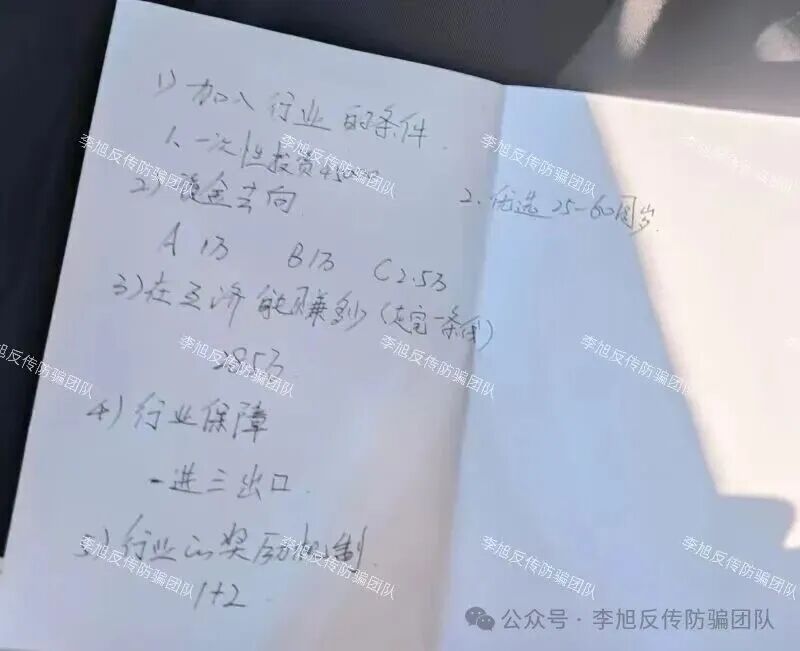 1) 加入行业的条件.
1、一次性投资45000
2、优选 25-60周岁.
2) 资金去向
A 1万 B 1万 C 2.5万
3) 在互济能赚多少(走完一条线)
28.5万
4) 行业保障
一进三出口.
5) 行业的奖励机制.
1+2
李旭反传防骗团队
李旭反传防骗团队
李旭反传防骗团队
李旭反传防骗团队
李旭反传防骗团队
李旭反传防骗团队
李旭反传防骗团队
李旭反传防骗团队
李旭反传防骗团队
李旭反传防骗团队
公众号 · 李旭反传防骗团队